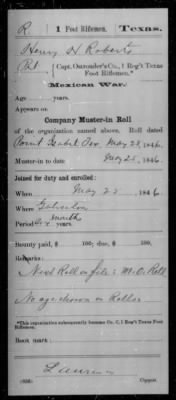 R | 1 Foot Riflemen. | Texas.
Henry H. Roberts
Pvt { Capt. Ousrouder's Co., 1 Reg't Texas Foot Riflemen.*
Mexican War.
Age years.
Appears on
Company Muster-in Roll
of the organization named above. Roll dated
Point Isabel Tex, May 25, 1846.
Muster-in to date May 25, 1846.
Joined for duty and enrolled:
When May 22 1846.
Where Galveston
Period six months years.
Bounty paid $ 100; due $ 100.
Remarks:
Next Roll on file is M.O. Roll
No age shown on Rolls
*This organization subsequently became Co. C, 1 Reg't Texas Foot Riflemen.
Book mark:
Copyist.